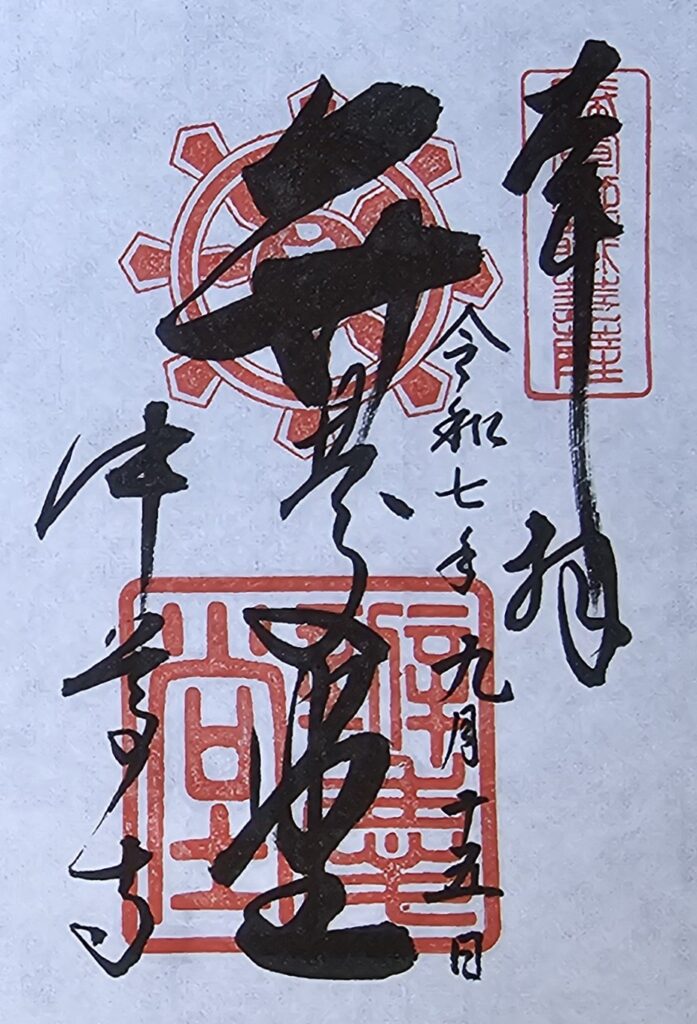 奉拝
令和七年九月十五日
弁慶堂
中尊寺